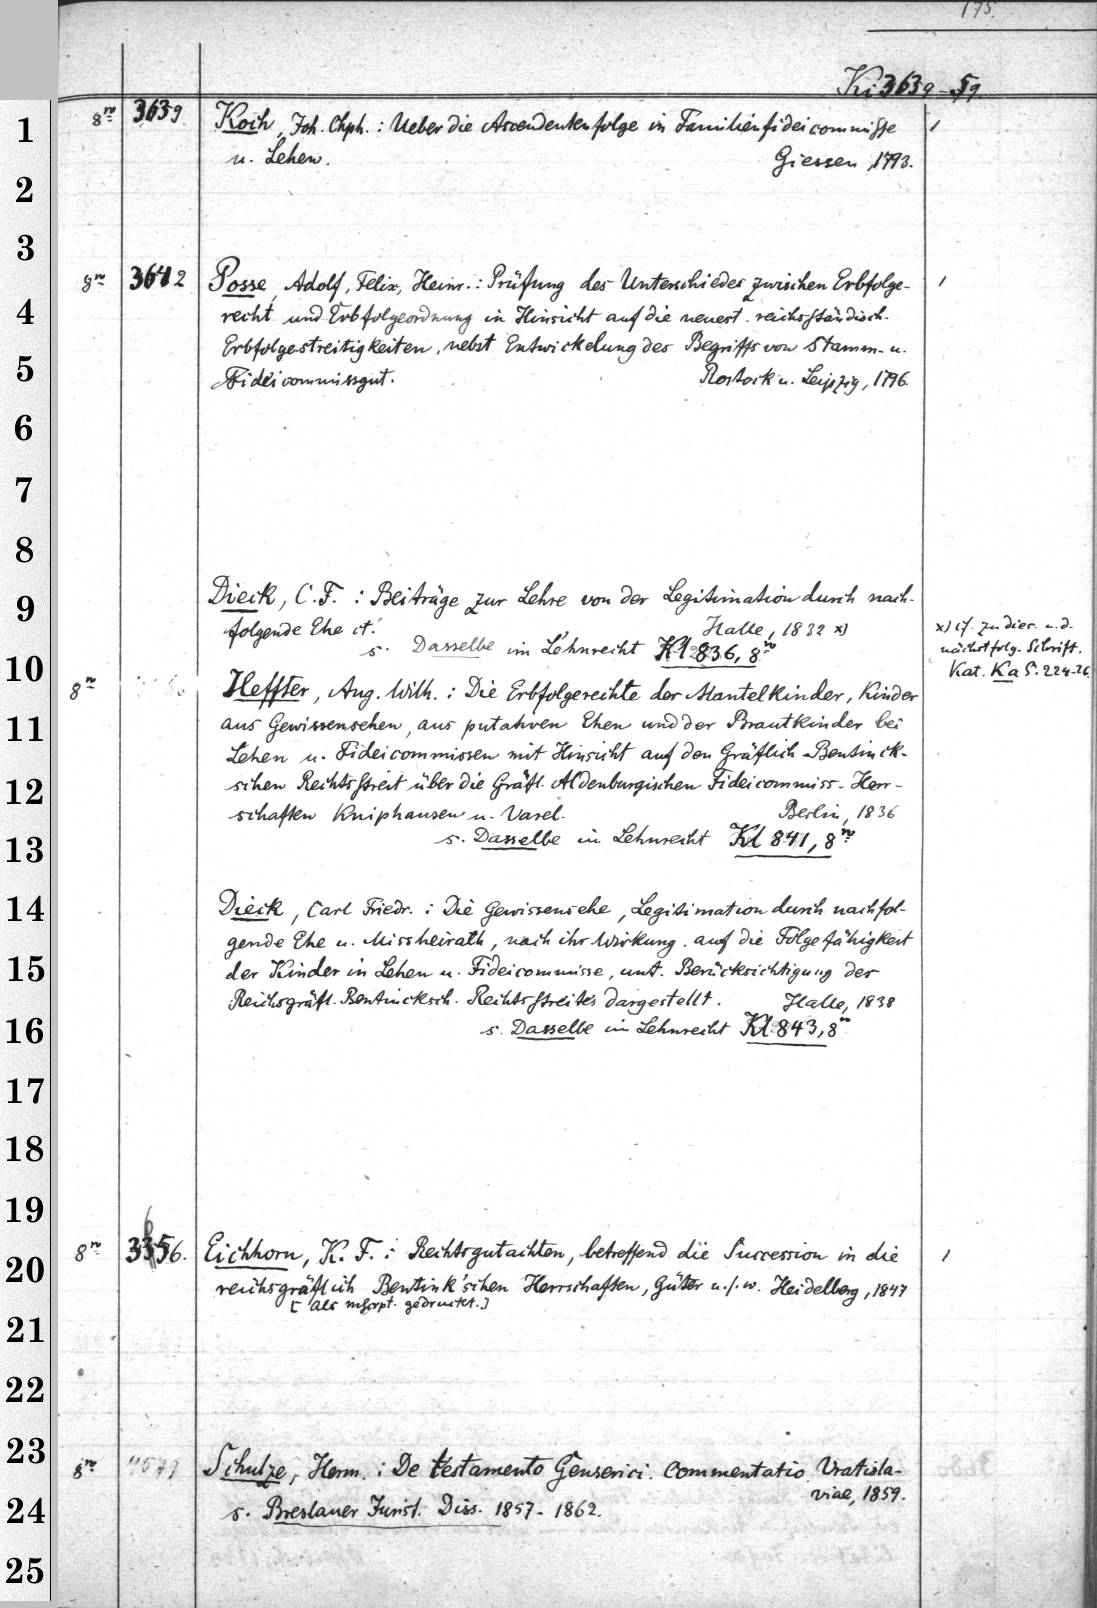 175.
Ki 3639-59
1
2
3
4
5
6
7
8
9
10
11
12
13
14
15
16
17
18
19
20
21
22
23
24
25
8º 3639 Koch, Joh. Chph.: Ueber die Ascendentenfolge in Familienfideicommisse 1
u. Lehen. Giessen, 1793.
8º 3642 Posse, Adolf, Felix, Heinr.: Prüfung des Unterschiedes zwischen Erbfolge- 1
recht und Erbfolgeordnung in Hinsicht auf die neuest. reichsständisch.
Erbfolgestreitigkeiten, nebst Entwickelung des Begriffs von Stamm- u.
Fideicommissgut. Rostock u. Leipzig, 1796.
Dieck, C. F.: Beiträge zur Lehre von der Legitimation durch nach-
folgende Ehe et. Halle, 1832 x)
s. Dasselbe im Lehnrecht Kl 836, 8º
x) cf. zu dies. u. d.
nächstfolg. Schrift.
Kat. Ka S. 224-26
8º Heffter, Aug. Wilh.: Die Erbfolgerechte der Mantelkinder, Kinder
aus Gewissensehen, aus putativen Ehen und der Brautkinder bei
Lehen u. Fideicommissen mit Hinsicht auf den Gräflich-Bentinck-
schen Rechtsstreit über die Gräfl. Aldenburgischen Fideicommiss-Herr-
schaften Kniphausen u. Varel. Berlin, 1836
s. Dasselbe in Lehnrecht Kl 841, 8º
Dieck, Carl Friedr.: Die Gewissensehe, Legitimation durch nachfol-
gende Ehe u. Missheirath, nach ihr Wirkung. auf die Folgefähigkeit
der Kinder in Lehen u. Fideicommisse, unt. Berücksichtigung des
Reichsgräfl. Bentincksch. Rechtsstreites dargestellt. Halle, 1838
s. Dasselbe im Lehnrecht Kl 843, 8º
8º 3656. Eichhorn, K. F.: Rechtsgutachten, betreffend die Succession in die 1
reichsgräflich Bentink'schen Herrschaften, Güter u.s.w. Heidelberg, 1847
[als mscrpt. gedruckt.]
8º Schulze, Herm.: De testamento Genserici. Commentatio. Vratisla-
viae, 1859.
s. Breslauer Jurist. Diss. 1857-1862.